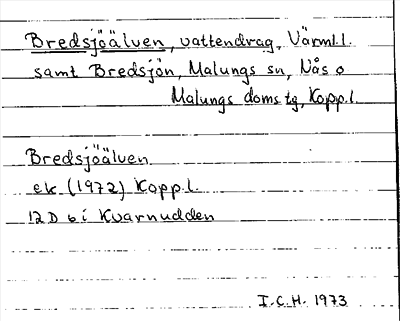 Bredsjöälven, vattendrag, Värml.l.
samt Bredsjön, Malungs sn, Nås o
Malungs doms.tg, Kopp.l.
Bredsjöälven
ek (1972) Kopp.l.
12 D 6 i Kvarnudden
I.C.H. 1973